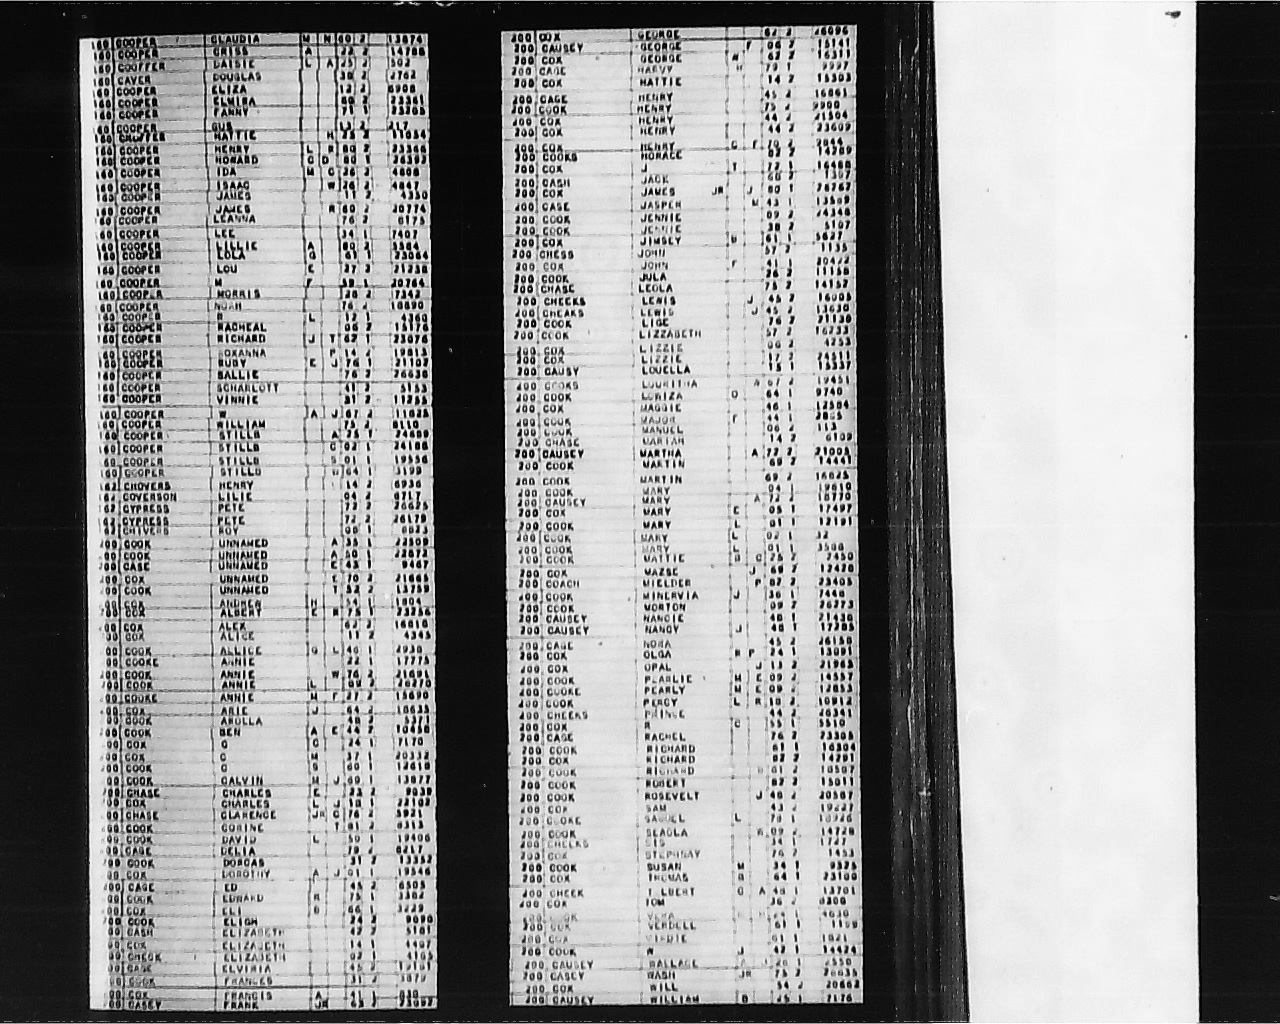 160 COOPER CLAUDIA M N 60 2 13674
160 COOPER CRISS A 22 2 14788
160 COOFFER DAISIE L A 25 2 502
160 CAVER DOUGLAS 38 2 2762
160 COOPER ELIZA 12 2 6908
160 COOPER ELMIRA 80 2 23361
160 COOPER FANNY 71 23205
160 COOPER GUS 217
160 HATTIE H 25 2 11054
160 COOPER HENRY L R 80 2 23366
160 COOPER HOWARD G D 80 1 26392
160 COOPER IDA M C 26 2 4808
160 COOPER ISAAC W 26 2 4867
160 COOPER JAMES 11 2 4350
160 COOPER JAMES R 60 2 20774
160 COOPER LEANNA 76 2 6175
160 COOPER LEE 34 1 7407
160 COOPER LILLIE A 80 2 5564
160 COOPER LOLA G 61 1 23064
160 COOPER LOU E 27 2 21238
160 COOPER M F 59 1 20764
160 COOPER MORRIS 28 2 7342
160 COOPER NOAH 76 2 18890
160 COOPER R L 12 1 4360
160 COOPER RACHEAL 06 2 13176
160 COOPER RICHARD J T 62 1 23076
160 COOPER ROXANNA P 14 2 19813
160 COOPER RUBY E J 76 1 21102
160 COOPER SALLIE 76 2 26639
160 COOPER SCHARLOTT 41 2 5153
160 COOPER VINNIE 31 2 11255
160 COOPER W A J 67 2 11625
160 COOPER WILLIAM 75 2 8110
160 COOPER STILLB A 75 1 24689
160 COOPER STILLB C 02 1 24188
160 COOPER STILLB S 01 1 19556
160 COOPER STILLB 64 1 3199
162 CHOVERS HENRY 14 2 6936
162 COVERSON LILIE 04 2 8717
162 CYPRESS PETE 72 2 26625
162 CYPRESS PETE 72 2 26178
162 CHIVERS ROY 06 1 8623
200 COOK UNNAMED A 35 1 22509
200 COOK UNNAMED A 50 1 22872
200 CASE UNNAMED E 43 1 9467
200 COX UNNAMED E 70 2 21665
200 COOK UNNAMED T 52 2 13759
200 COX ANDREW H 54 1 1804
200 COX ALBERT E R 75 1 23256
200 COX ALEX 62 2 16810
200 COX ALICE 11 2 4345
200 COOK ALLICE G L 46 1 2930
200 COOKE ANNIE 22 1 17775
200 COOK ANNIE W 76 2 21691
200 COOK ANNIE L 09 2 26270
200 COOKE ANNIE M F 27 2 15690
200 COX ARIE J 64 2 18635
200 COOK AROLLA 48 2 5371
200 COOK BEN A E 44 2 10450
200 COX C C 24 1 7170
200 COX C M 37 1 20332
200 COOK C S 60 1 12618
200 COOK CALVIN M J 60 1 13877
200 CHASE CHARLES E 23 2 9039
200 COX CHARLES L J 10 1 22102
200 CHASE CLARENCE JR C 76 2 5921
200 COOK CORINE T 81 2 8313
200 COOK DAVID L 50 1 19406
200 CAGE DELIA 79 2 6217
200 COOK DORCAS 31 2 13352
200 COX DOROTHY A J 01 1 19546
200 CAGE ED 45 2 6505
200 COOK EDWARD R 75 1 3362
200 COX ELI B 66 1 3229
200 COOK ELIGH 24 2 9090
200 CASH ELIZABETH 42 2 5181
200 COX ELIZABETH 14 1 4407
200 CHECK ELIZABETH 02 1 4165
200 CASE ELVIRIA 45 2
200 COOK FRANCES 31 2 3879
200 COX FRANCIS A
200 CASEY FRANK JR 63 1
200 COX GEORGE 62 2 26096
200 CAUSEY GEORGE F 06 2 15141
200 COX GEORGE W 62 2 16311
200 CAGE HARVY H 79 1
200 COX HATTIE 14 2 15303
200 CAGE HENRY 45 2 16861
200 COOK HENRY 75 2 9900
200 COX HENRY 44 2 21504
200 COX HENRY 44 2 23609
200 COX HENRY C F 70 2
200 COOKS HORACE 82 2 14209
200 COX J T 72 1 16488
200 CASH JACK 60 2 1397
200 COX JAMES JR J 80 1 26262
200 CASE JASPER M 43 1 13509
200 COOK JENNIE 09 2 24348
200 COOK JENNIE 38 2 5107
200 COX JIMSEY B 61 2 5627
200 CHESS JOHN 57 1 1135
200 COX JOHN F 41 1 20472
200 COOK JULA 26 2 11156
200 CHASE LEOLA 75 2 14152
200 CHEEKS LEWIS J 45 2 16005
200 CHEAKS LEWIS J 45 2 13630
200 COOK LIGE 76 2 21130
200 COOK LIZZABETH 57 2 16233
200 COX LIZZIE 06 2 4253
200 COX LIZZIE 17 2 24511
200 CAUSY LOUELLA 15 1 15337
200 COOKS LOURITHA A 67 2 19451
200 COOK LURIZA O 64 1 9740
200 COX MAGGIE 46 1 12504
200 COOK MAJOR F 44 1
200 COOK MANUEL 06 2 113
200 CHASE MARIAH 14 2 6109
200 CAUSEY MARTHA A 72 2 21005
200 COOK MARTIN 69 2 14441
200 COOK MARTIN 69 2 16625
200 COOK MARY 04 1 19610
200 CAUSEY MARY A 72 2 18770
200 COX MARY E 05 1 17497
200 COOK MARY L 01 1 12191
200 COOK MARY L 02 1 32
200 COOK MARY L 01 1 3508
200 COOK MATTIE B C 25 2 7450
200 COX MAZSE J 68 2 12420
200 COACH MIELDER P 07 2 23405
200 COOK MINERVIA J 36 1 2448
200 COOK MORTON 09 2 26273
200 CAUSEY NANCIE 48 1 21430
200 CAUSEY NANCY J 48 1 17285
200 CAGE NORA 45 2 26150
200 COX OLGA R P 24 1 13091
200 COX OPAL J 13 2 21965
200 COOK PEARLIE M E 09 2 14557
200 COOKE PEARLY M E 09 2 12853
200 COOK PERCY L R 10 2 10912
200 CHEEKS PRINCE 44 2 20341
200 COX R C 55 1 5510
200 CASE RACHEL 76 2 23305
200 COOK RICHARD 61 1 16304
200 COX RICHARD 82 2 14291
200 COOK RICHARD H 61 2 18507
200 COOK ROBERT 82 2 15011
200 COOK ROSEVELT J 40 2 20587
200 COX SAM 43 2 19227
200 COOKE SAMUEL L 78 1
200 COOK SEAOLA R 09 2 14728
200 CHEEKS SIS 34 1 1727
200 COX STEPHNAY 76 2 1453
200 COOK SUSAN M 34 1 9325
200 COX THOMAS B 64 1 23100
200 CHEEK TILBERT C A 48 1 13701
200 COX TOM 36 2 8300
200 COOK VERA 4630
200 COX VERDELL 61 1
200 COX VIRDIE 61 1 1821
200 COOK W J 42 1 14424
200 CAUSEY WALLACE A J 26 1 2550
200 CASEY WASH JR 75 2 26635
200 COX WILL 54 2 20662
200 CAUSEY WILLIAM B 25 1 7176